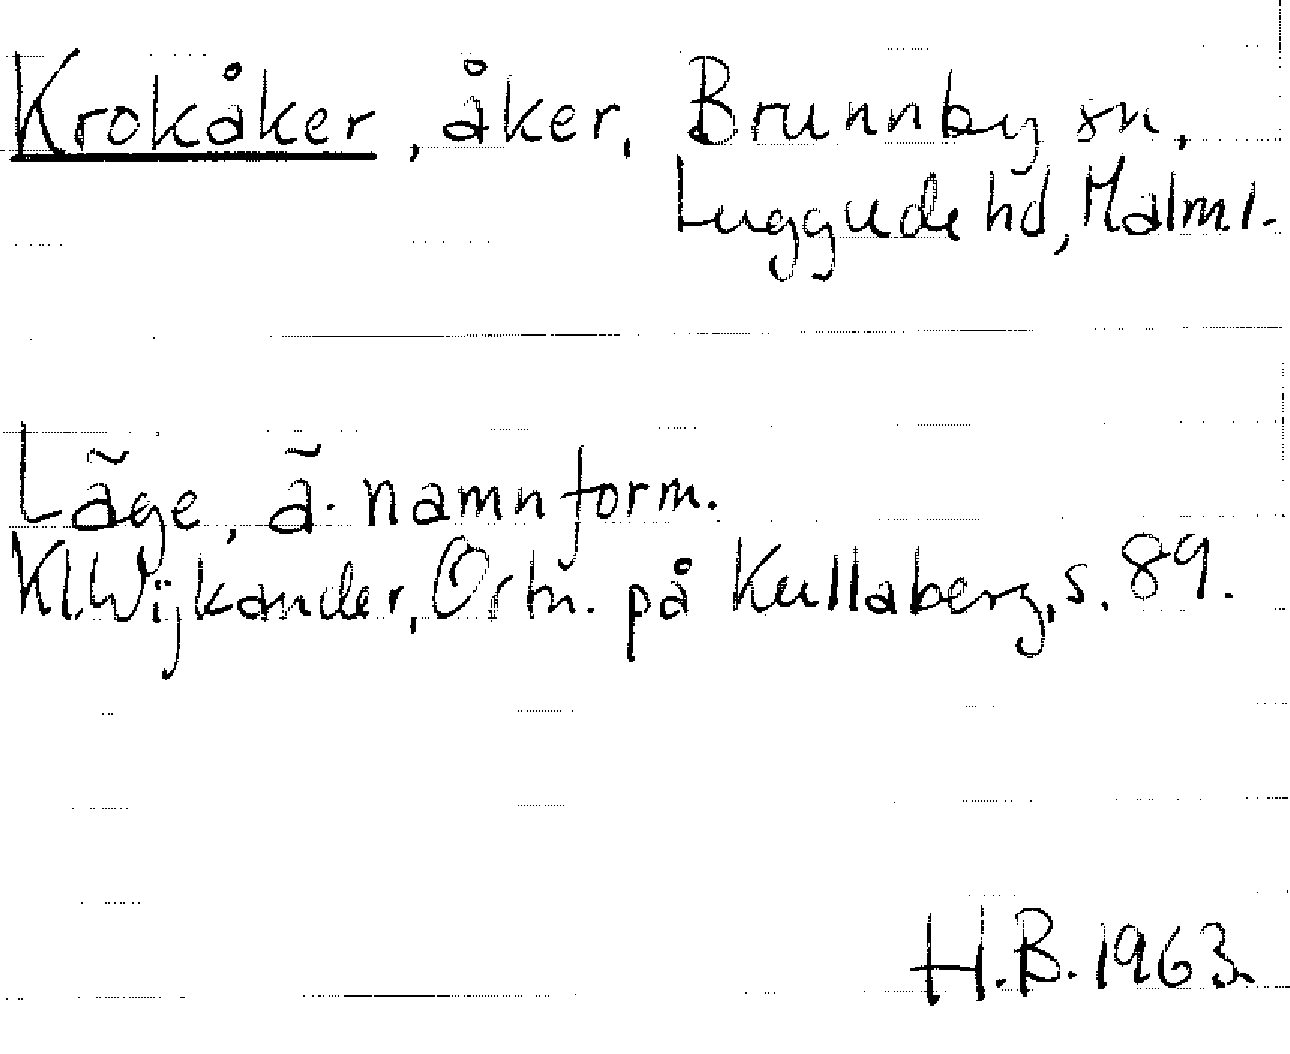 Krokåker, åker, Brunnby sn,
Luggude hd, Malm.l.
Läge, ä. namnform.
Kl.Wijkander, Ortn. på Kullaberg, s. 89.
H.B. 1963.